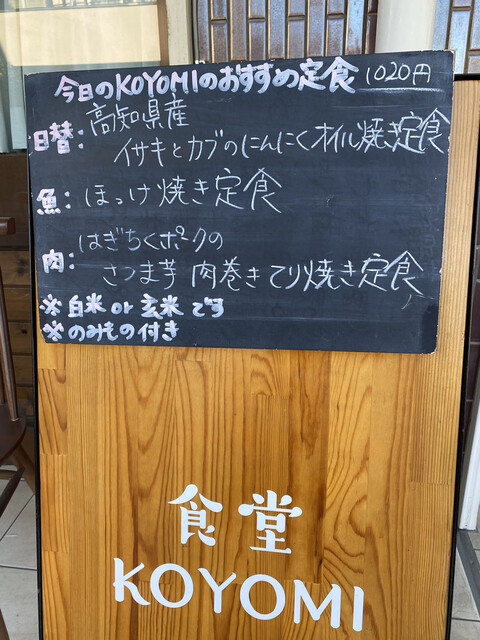 今日のKOYOMIのおすすめ定食 1020円
日替: 高知県産
イサキとカブのにんにくオイル焼き定食
魚: ほっけ焼き定食
肉: はぎちくポークの
さつま芋 肉巻きてり焼き定食
※白米or玄米です
※のみもの付き
食堂
KOYOMI